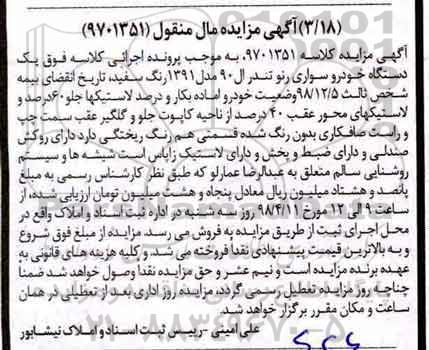 (۳/۱۸) آگهی مزایده مال منقول (۹۷۰۱۳۵۱)
آگهی مزایده کلاسه ۹۷۰۱۳۵۱. به موجب پرونده اجرائی کلاسه فوق یک
دستگاه خودرو سواری رنو تندر ال۹۰ مدل۱۳۹۱رنگ سفید، تاریخ انقضای بیمه
شخص ثالث ۹۸/۱۲/۵وضعیت خودرو اماده بکار و درصد لاستیکها جلو۶۰درصد و
لاستیکهای محور عقب ۴۰ درصد از ناحیه کاپوت جلو و گلگیر عقب سمت چپ
و راست صافکاری بدون رنگ شده قسمتی هم رنگ ریختگی دارد دارای روکش
صندلی و دارای ضبط و پخش و دارای لاستیک زاپاس است شیشه ها و سیستم
روشنایی سالم متعلق به عبدالرضا عمارلو که طبق نظر کارشناس رسمی به مبلغ
پانصد و هشتاد میلیون ریال معادل پنجاه و هشت میلیون تومان ارزیابی شده، از
ساعت ۹ الی ۱۲ مورخ ۹۸/۴/۱۱ روز سه شنبه در اداره ثبت اسناد و املاک واقع در
محل اجرای ثبت از طریق مزایده به فروش می رسد. مزایده از مبلغ فوق شروع
و به بالاترین قیمت پیشنهادی نقدا فروخته می شد، و کلیه هزینه های قانونی به
عهده برنده مزایده است و نیم عشر و حق مزایده نقدا وصول خواهد شد ضمنا
چنانچه روز مزایده تعطیل رسمی گردد، مزایده روز اداری بعد از تعطیلی در همان
ساعت و مکان مقرر برگزار خواهد شد.
علی امینی -رییس ثبت اسناد و املاک نیشابور